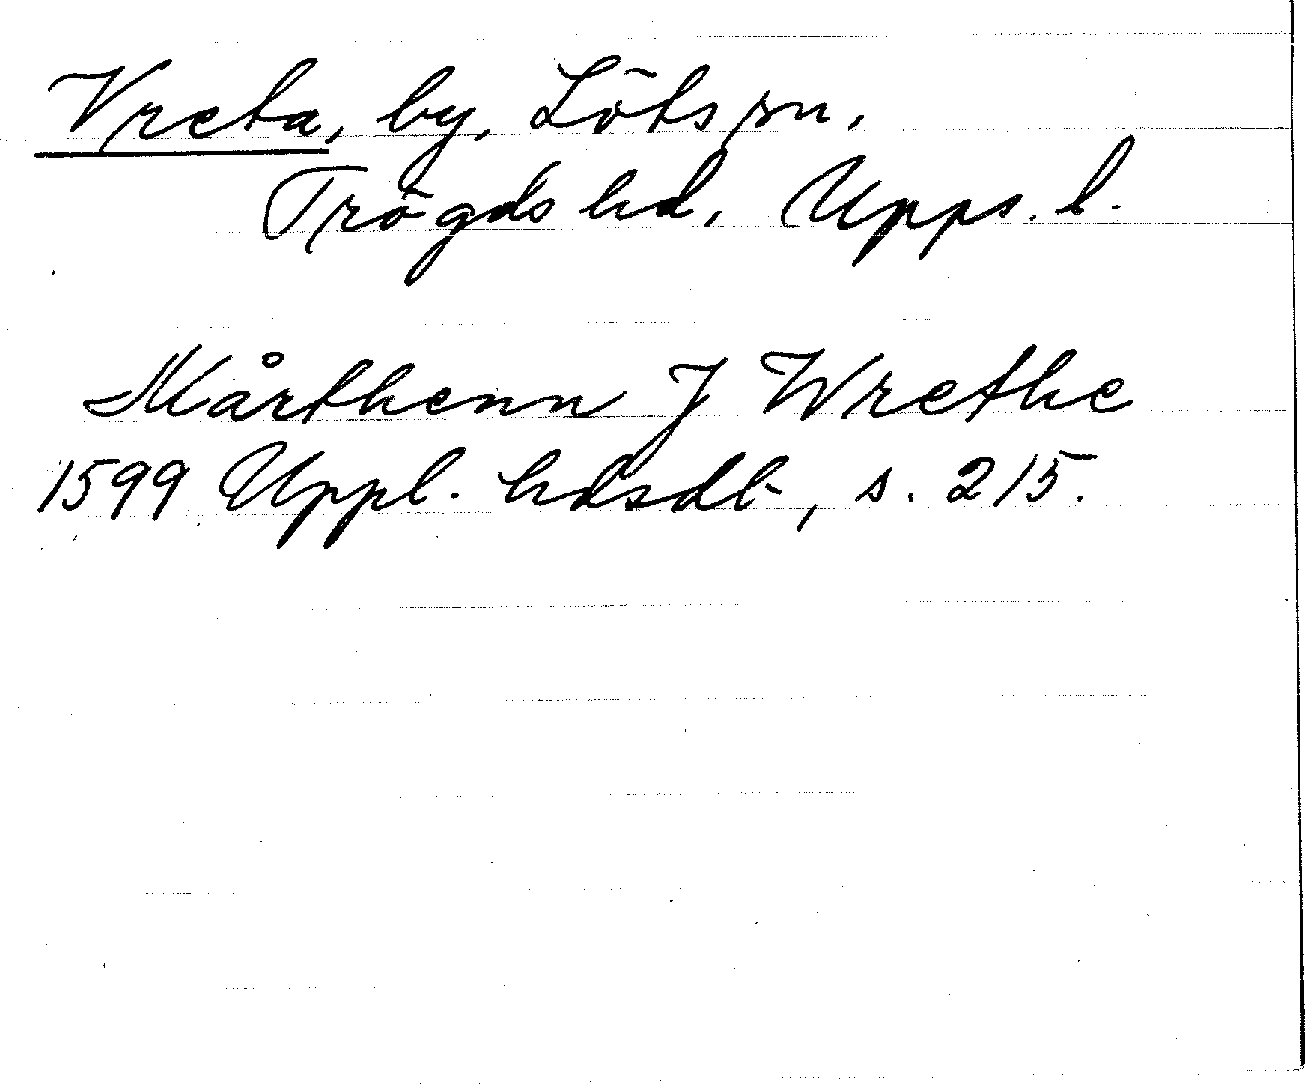 Vreta, by, Löts sn,
Trögds hd, Upps. l.
Mårthenn J Wrethe
1599 Uppl. hdsdb, s. 215.